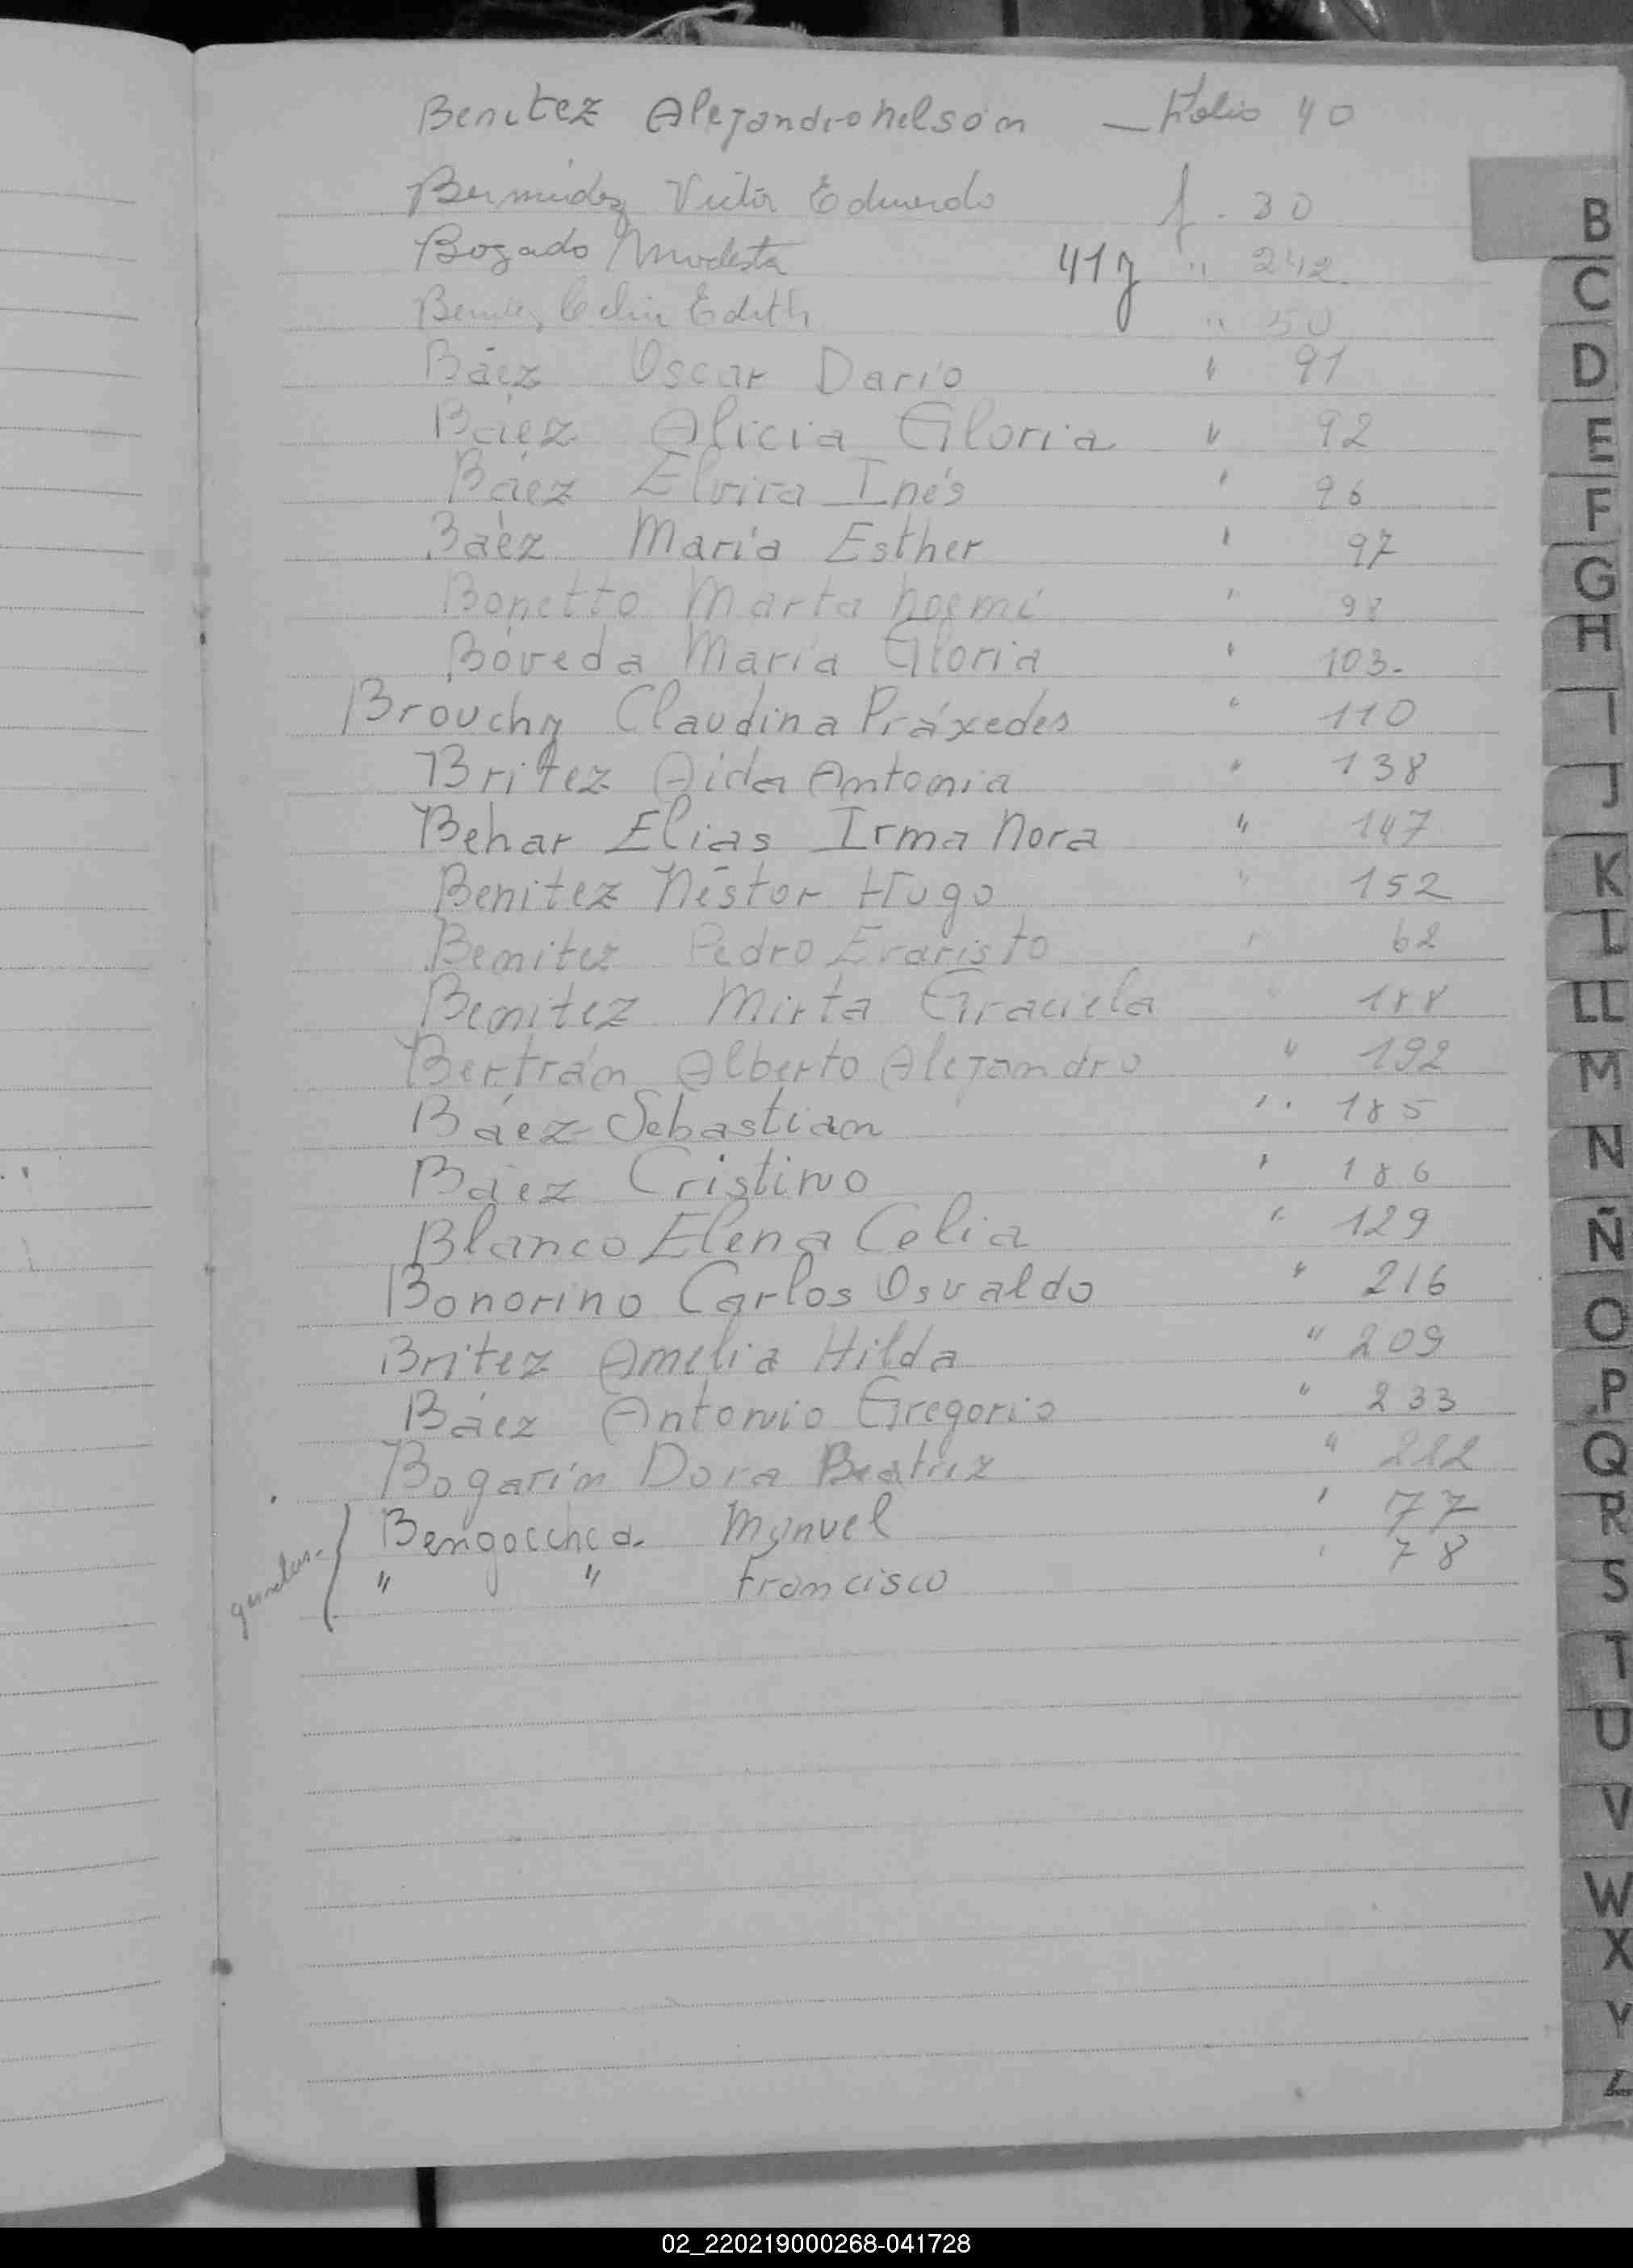 Benitez Alejandro Nelson — Folio 40
Bermudez Victor Eduardo f. 30
Bogado Modesta 41 y " 242
Benitez Celia Edith " 50
Báez Oscar Darío " 91
Báez Alicia Gloria " 92
Báez Elvira Inés " 96
Báez María Esther " 97
Bonetto Marta Noemí " 98
Bóveda María Gloria " 103.
Brouchy Claudina Práxedes " 110
Britez Aida Antonia " 138
Behar Elias Irma Nora " 147
Benitez Néstor Hugo " 152
Benitez Pedro Evaristo " 62
Benitez Mirta Graciela " 188
Bertrán Alberto Alejandro " 192
Báez Sebastian " 185
Báez Cristino " 186
Blanco Elena Celia " 129
Bonorino Carlos Osvaldo " 216
Britez Amelia Hilda " 209
Báez Antonio Gregorio " 233
Bogarín Dora Beatriz " 222
Bengocchea Manuel " 77
" " Francisco " 78
B
C
D
E
F
G
H
I
J
K
L
LL
M
N
Ñ
O
P
Q
R
S
T
U
V
W
X
Y
Z
02_220219000268-041728